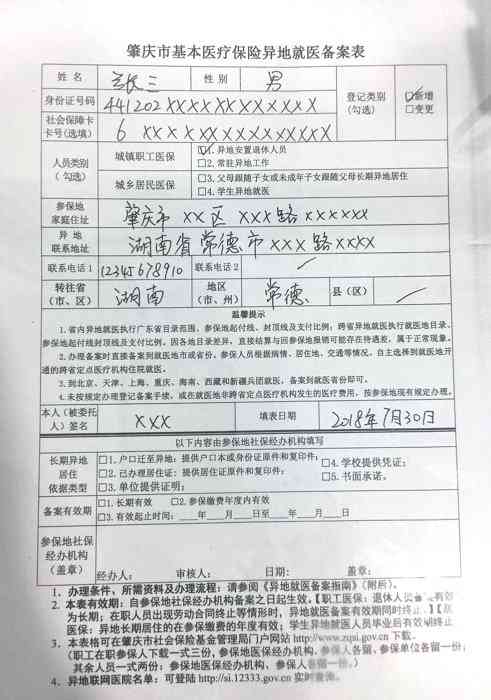 肇庆市基本医疗保险异地就医备案表
姓名 张三 性别 男 登记类别（勾选） ☑新增 □变更
身份证号码 441202XXXXXXXXXXXX
社会保障卡卡号(选填) 6 XXXXXXXXXXXXXX
人员类别（勾选） 城镇职工医保 ☑1. 异地安置退休人员
□2. 常驻异地工作
城乡居民医保 □3. 父母跟随子女或未成年子女跟随父母长期异地居住
□4. 学生异地就医
参保地家庭住址 肇庆市XX区XXX路XXXXXX
异地联系地址 湖南省常德市XXX路XXXX
联系电话1 12345678910 联系电话2 /
转往省（市、区） 湖南 地区（市、州） 常德 县（区） /
温馨提示
1. 省内异地就医执行广东省目录范围、参保地起付线、封顶线及支付比例；跨省异地就医执行就医地目录、
参保地起付线封顶线及支付比例。因各地目录差异，直接结算与回参保地报销可能存在待遇差，属于正常现象。
2. 办理备案时直接备案到就医地市或省份。参保人员根据病情、居住地、交通等情况，自主选择到就医地开
通的跨省定点医疗机构住院就医。
3. 到北京、天津、上海、重庆、海南、西藏和新疆兵团就医，备案到就医省份即可。
4. 未按规定办理登记备案手续，或在就医地非跨省定点医疗机构发生的医疗费用，按参保地现有规定办理。
本人（被委托人）签名 XXX 填表日期 2018年7月30日
以下内容由参保地社保经办机构填写
长期异地居住依据类型 □1. 户口迁至异地：提供户口本或身份证原件和复印件； □4. 学校提供凭证；
□2. 已办理居住证：提供居住证原件和复印件； □5. 书面承诺。
□3. 单位提供证明；
备案有效期 □1. 长期有效 □2. 参保缴费年度内有效
□3. 有效起止时间：____年____月____日至____年____月____日
参保地社保经办机构（盖章）
经办人： 审核人： 日期： 盖章：
1. 办理条件、所需资料及办理流程：请参阅《异地就医备案指南》（附后）。
2. 本表有效期：自参保地社保经办机构备案之日起生效，【职工医保：退休人员备案有效
为长期；在职人员出现劳动合同终止等情形时，异地就医备案有效期同时终止。】【居
医保：异地长期居住的在参保缴费的年度有效；学生异地就医人员毕业后有效期终止
3. 本表格可在肇庆市社会保险基金管理局门户网站 http://www.zqsi.gov.cn 下载。
（职工在职参保人下载一式三份，参保地医保经办机构、参保人各留,参保单位各留一份；
其余人员一式两份：参保地医保经办机构、参保人各留一份。）
4. 异地联网医院名单：可登陆 http://si.12333.gov.cn 实时查询。